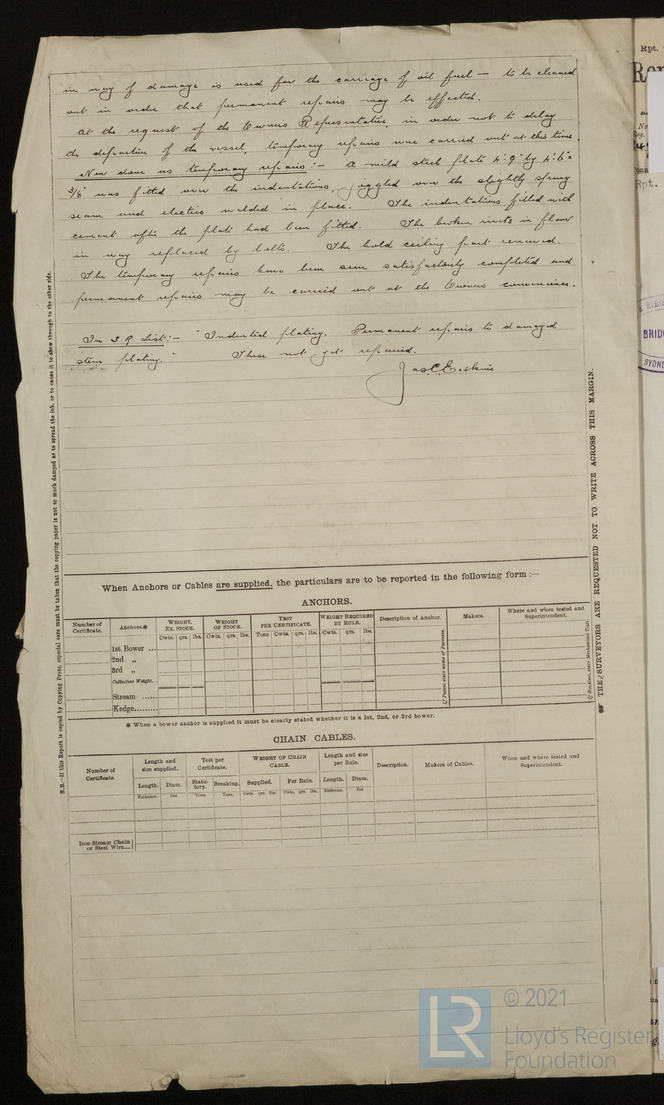 in way of damage is used for the carriage of oil fuel — to be cleaned
out in order that permanent repairs may be effected.
At the request of the Owners Representative, in order not to delay
the departure of the vessel, temporary repairs were carried out at this time
Now done as temporary repairs :- A mild steel plate 4'.9" by 4'.6" x
3/8" was fitted over the indentations, joggled over the slightly sprung
seam and electric welded in place. The indentations filled with
cement after the plate had been fitted. The broken rivets in floor
in way replaced by bolts. The hold ceiling part renewed.
The temporary repairs have been seen satisfactorily completed and
permanent repairs may be carried out at the Owners convenience.
In S.R List :- "Indented plating. Permanent repairs to damaged
stem plating." These not yet repaired.
Jas C Erskine
When Anchors or Cables are supplied, the particulars are to be reported in the following form :—
ANCHORS.
Number of Certificate. Anchors.* WEIGHT, EX. STOCK. WEIGHT OF STOCK. TEST PER CERTIFICATE. WEIGHT REQUIRED BY RULE. Description of Anchor. Makers. Where and when tested and Superintendent.
Cwts. qrs. lbs. Cwts. qrs. lbs. Tons Cwts. qrs. lbs. Cwts. qrs. lbs.
1st Bower ..
2nd „
3rd „
Collective Weight.
Stream ......
Kedge........
If Patent state name of Patentee.
* When a bower anchor is supplied it must be clearly stated whether it is a 1st, 2nd, or 3rd bower.
CHAIN CABLES.
Number of Certificate. Length and size supplied. Test per Certificate. WEIGHT OF CHAIN CABLE. Length and size per Rule. Description. Makers of Cables. When and where tested and Superintendent.
Length. Diam. Statutory. Breaking. Supplied. Per Rule. Length. Diam.
Fathoms. Ins Tons. Tons. Cwts. qrs. lbs. Cwts. qrs. lbs. Fathoms. Ins
Iron Stream Chain or Steel Wire...
N.B.—If this Report is copied by Copying Press, especial care must be taken that the copying paper is not so much damped as to spread the ink, or to cause it to shew through to the other side.
THE SURVEYORS ARE REQUESTED NOT TO WRITE ACROSS THIS MARGIN.
Rpt.
Rpt.
SYDNE
LR
© 2021
Lloyd's Register
Foundation